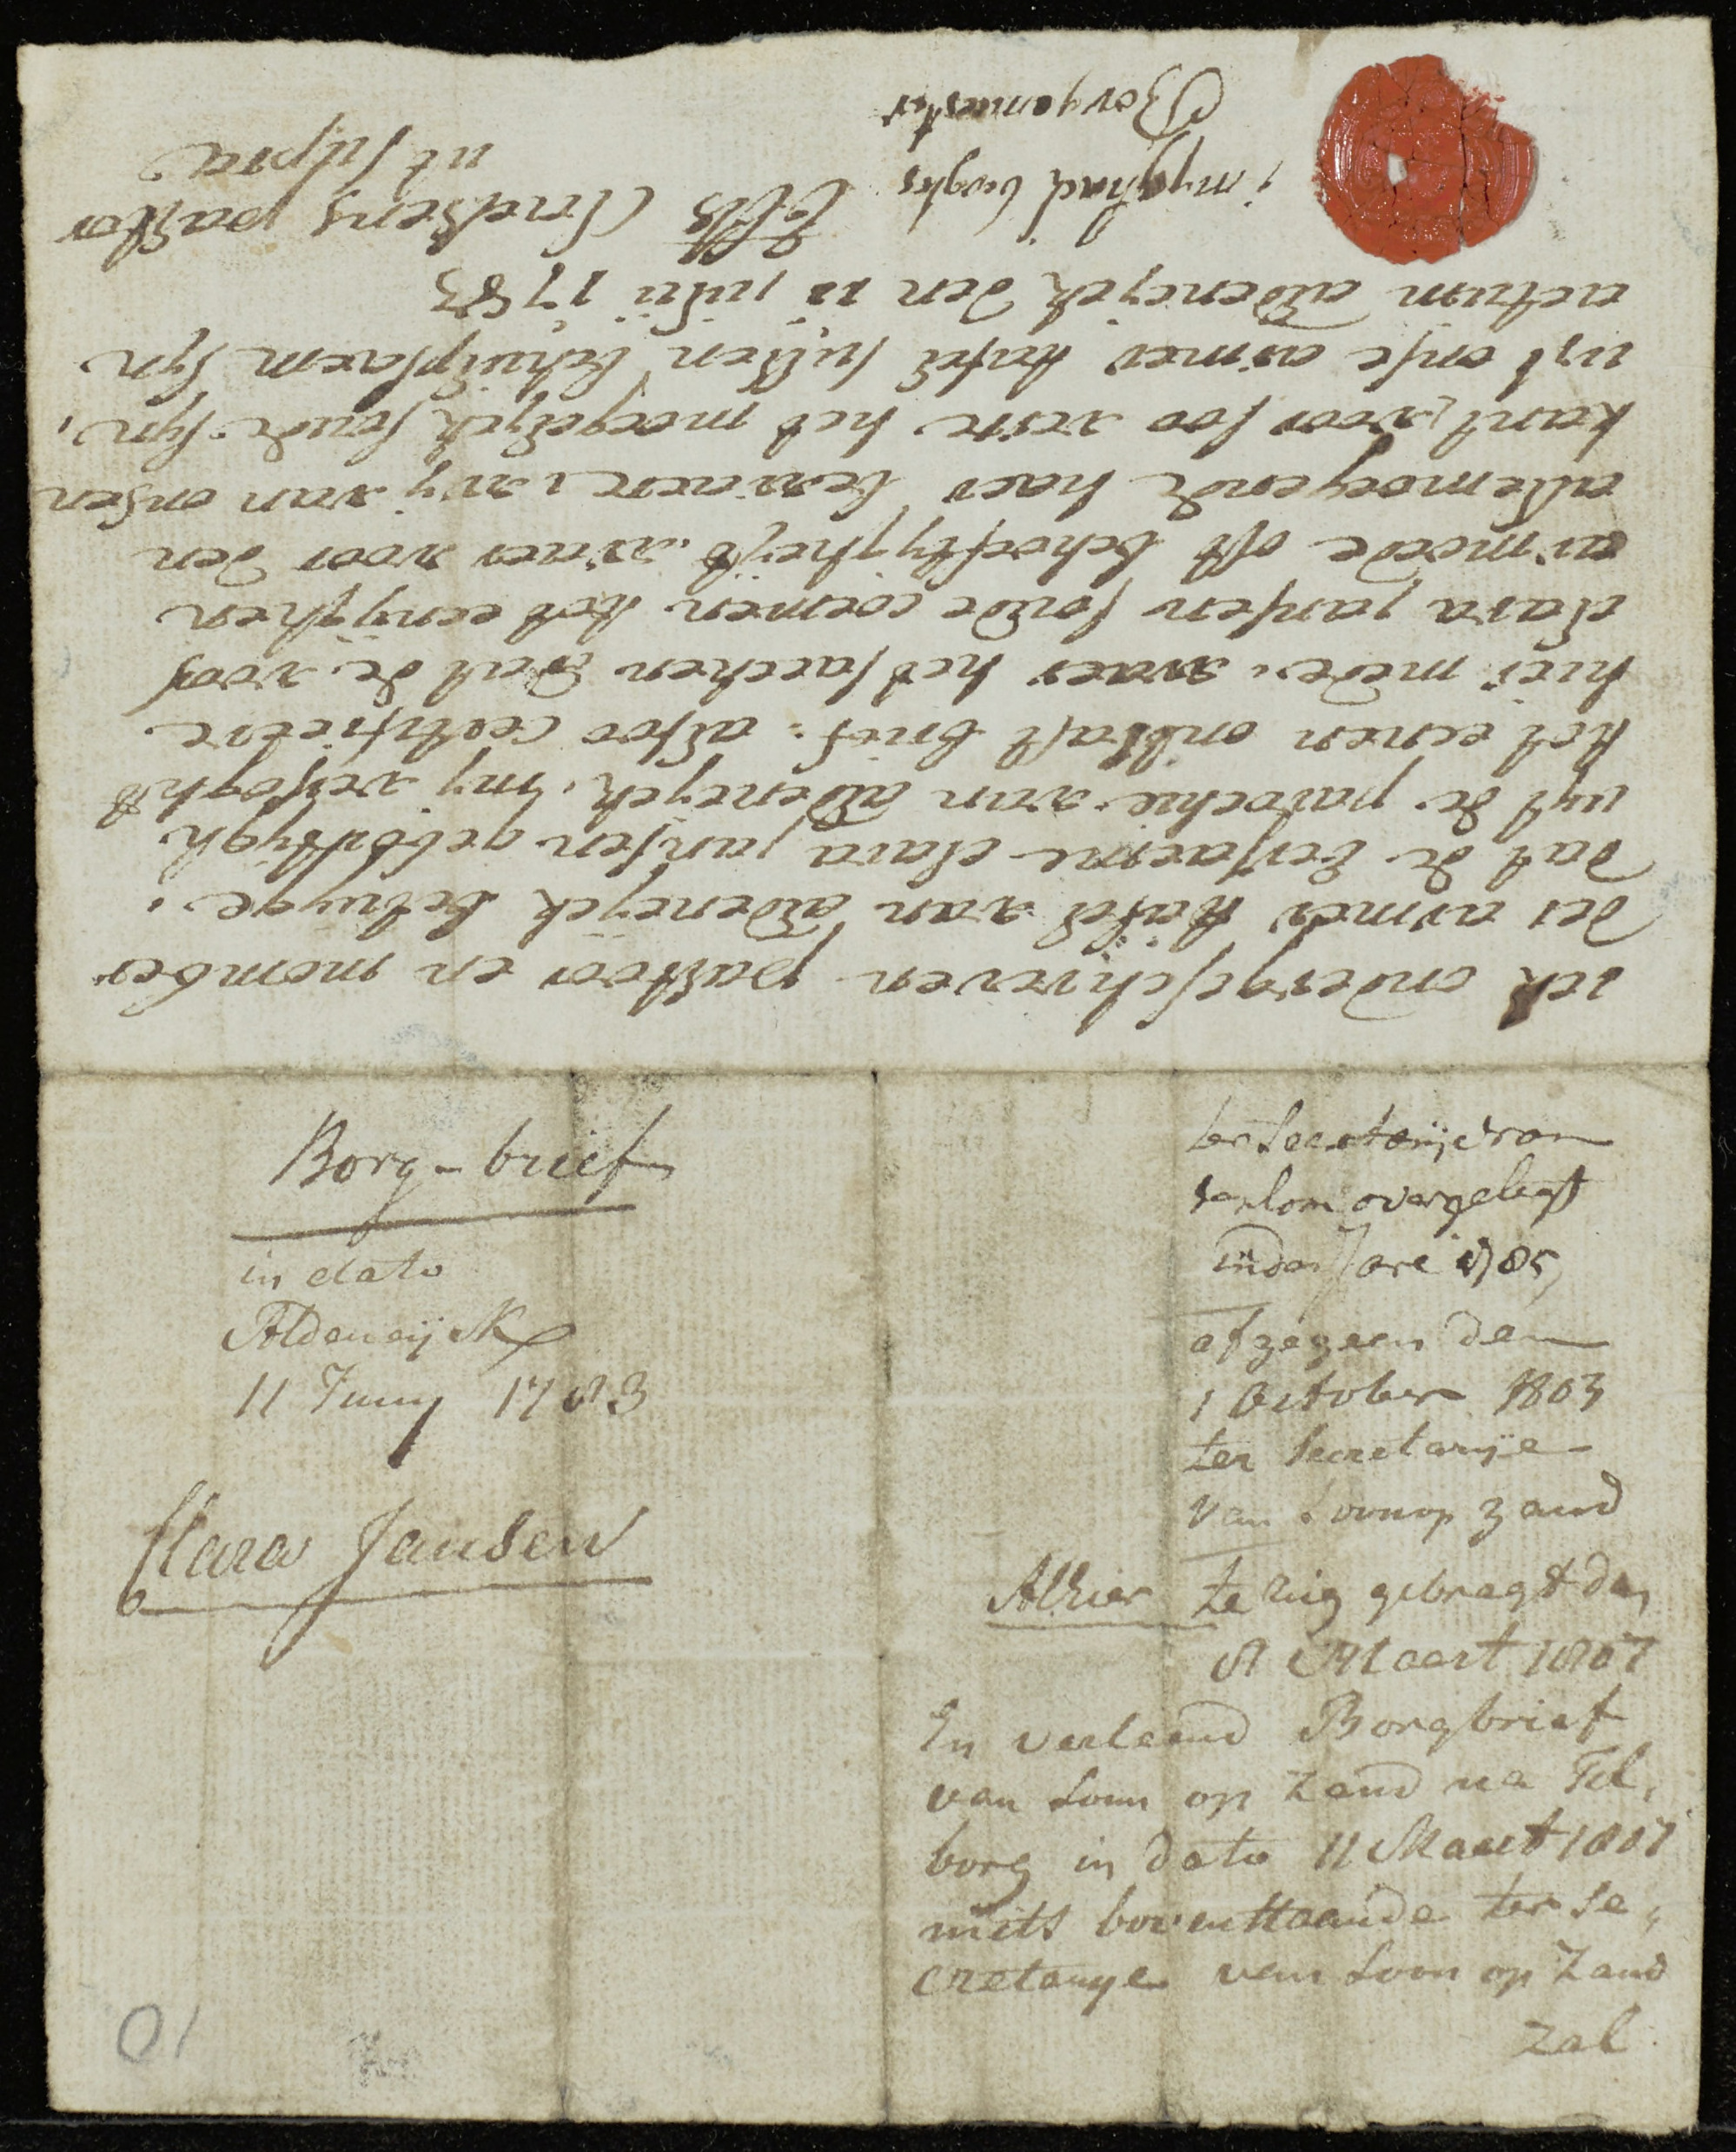 ick ondergeschreven pastoor en momber
der armer taefel van aldeneyck betuyge,
dat de eersaeme clara jansen gebortygh
uyt de parochie van aldeneyck, my versoght
het eenen ontlast brief: alsoo certificere
hier mede, waer het saecken dat de voors
clara jansen soude coemen tot eenighen
armoede oft behoeftygheyt, waer voor den
allemoegende haer bewaere, wy van onsen
kant, voor soo verre het moegelyck soude syn,
uyt onse armer tafel sullen behulpsaem syn
actum aldeneyck den 11 julii 1783
pastoor
ut supra
Borgemeester
Borg-brief
in dato
Aldeneijck
11 Juny 1783
Clara Jansen
ter secretarije van
venloon overgelegt
inden Jare 1785
afgegeeven den
1 October 1803
ter secretarije
van Loon op Zand
Alhier te rug gebragt den
8 Maart 1807
En verleend Borgbrief
van Loon op Zand na Til,
borg in dato 11 Maart 1807
mits bovenstaande ter Se,
cretarye van Loon op Zand
zal
10